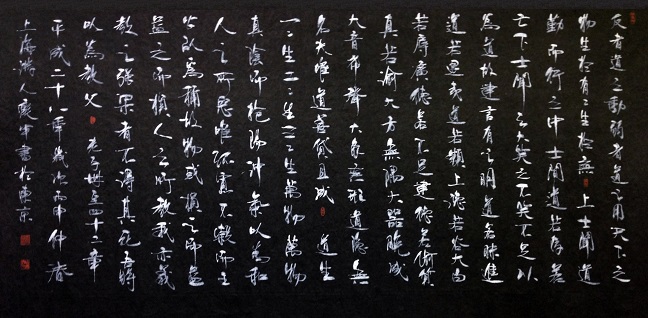 反者道之動弱者道之用天下之
物生於有有生於無 上士聞道
勤而行之中士聞道若存若
亡下士聞之大笑之不笑不足以
為道故建言有之明道若昧進
道若退夷道若纇上德若谷大白
若辱廣德若不足建德若偷質
真若渝大方無隅大器晚成
大音希聲大象無形道隱無
名夫唯道善貸且成 道生
一一生二二生三三生萬物萬物
負陰而抱陽沖氣以為和
人之所惡唯孤寡不穀而王
公以為稱故物或損之而益
益之而損人之所教我亦我
教之強梁者不得其死吾將
以為教父 老子四十二章
平成二十八年歲次丙申仲春
上海人書於東京